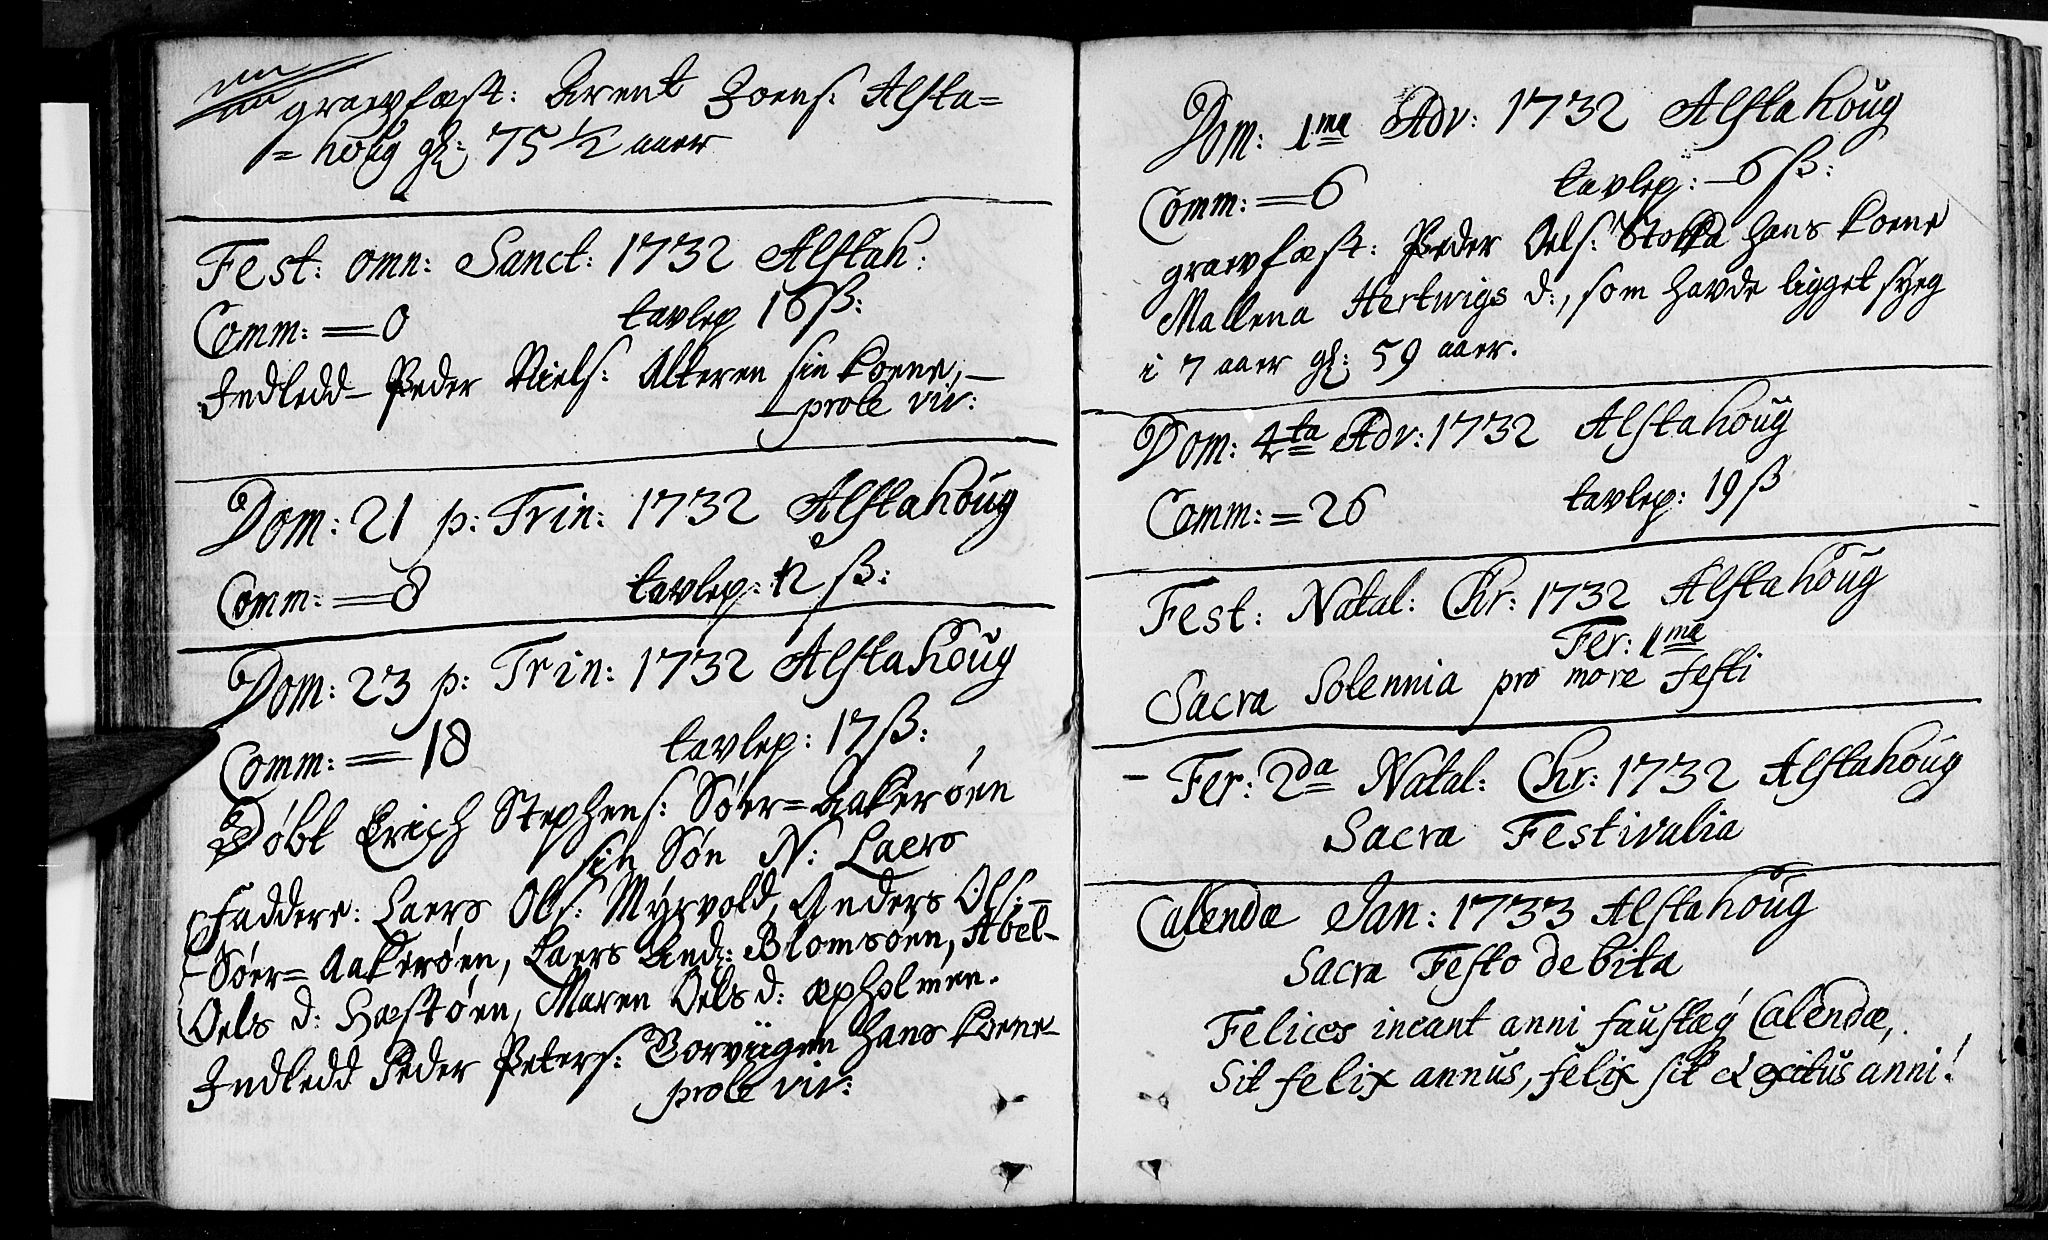 graevfæst: Arent Joens: Alsta=
=houg gl: 75 1/2 aaer
Fest: omn: Sanct: 1732 Alstah:
Comm: = 0 tavlep 16 ß:
Indledd Peder Niels: Alteren sin koene,
prole viv:
Dom: 21 p: Trin: 1732 Alstahoug
Comm: = 8 tavlep: 12 ß:
Dom: 23 p: Trin: 1732 Alstahoug
Comm: = 18 tavlep: 17 ß:
Døbt Erich Stephens: Søer=Aakerøen
sin Søn N: Laers
Faddere: Laers Ols: Myrvold, Anders Ols:
Søer=Aakerøen, Laers And: Blomsøen, Abel
Oels d: Hæstøen, Maren Oels d: æpholmen.
Indledd Peder Peters: Torviigen hans koene
prole viv:
Dom: 1ma Adv: 1732 Alstahoug
Comm: = 6 tavlep: 6 ß:
graevfæst: Peder Oels: Stokka hans koene
Mallena Hertwigs d:, som havde ligget syeg
i 7 aaer gl: 59 aaer.
Dom: 4ta Adv: 1732 Alstahoug
Comm: = 26 tavlep: 19 ß
Fest: Natal: Chr: 1732 Alstahoug
Fer: 1ma
Sacra Solennia pro more festi
Fer: 2da Natal: Chr: 1732 Alstahoug
Sacra Festivalia
Calendæ Jan: 1733 Alstahoug
Sacra Festo debita
Felices ineant anni faustæq Calendæ,
Sit felix annus, felix sit exitus anni!